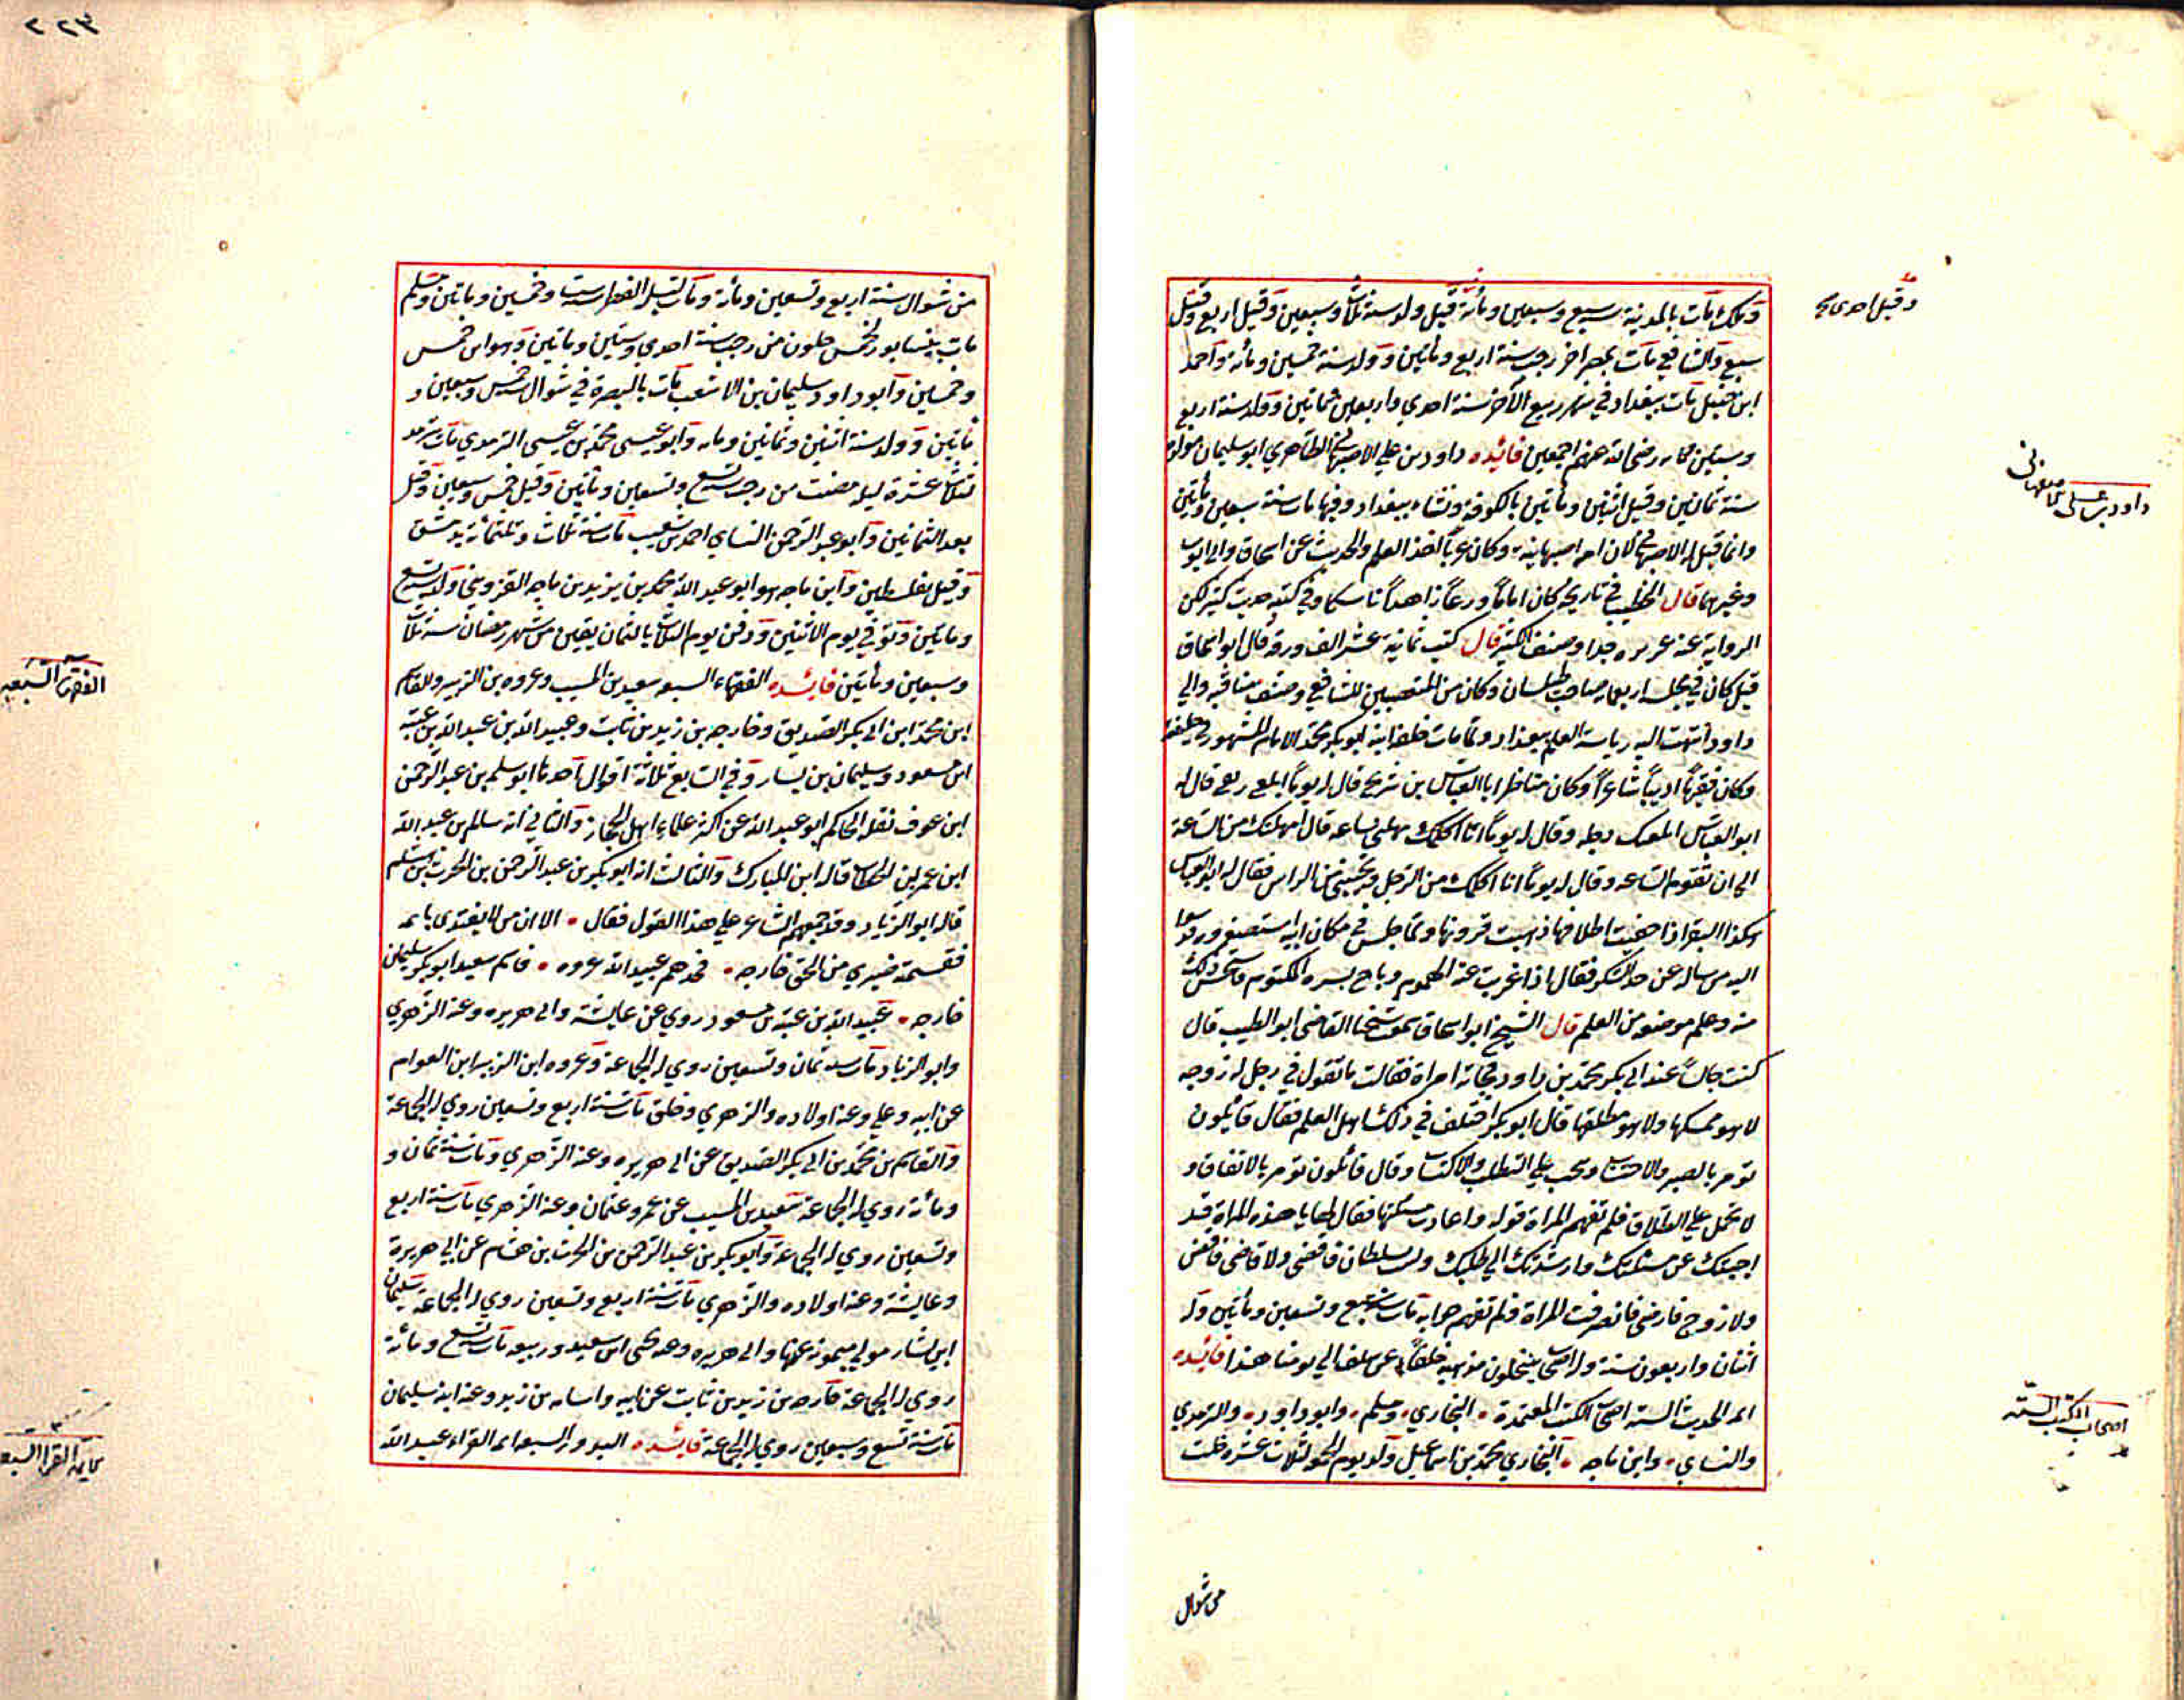 ومالك مات بالمدينة سبع وسبعين ومائة قيل ولد سنة ثلاث وسبعين وقيل اربع وقيل
وقيل احدى
سبع والشافعي مات بمصر اخر رجب سنة اربع ومأتين وولد سنة خمسين ومائة واحمد
ابن حنبل مات ببغداد في شهر ربيع الآخر سنة احدي واربعين ومأتين وولد سنة اربع
وستين ومائه رضي الله عنهم اجمعين فائده داود بن علي الاصبهاني الظاهري ابو سليمان مولده
داود بن علي الاصفهاني
سنة ثمانين وقيل اثنين ومأتين بالكوفة ونشاء ببغداد وفيها مات سنة سبعين ومأتين
وانما قيل له الاصبهاني لان امه اصبهانية وكان عراقيا اخذ العلم والحديث عن اسحاق وابي ثور
وغيرهما قال الخطيب في تاريخه كان اماماً ورعاً زاهداً ناسكا وفي كتبه حديث كثير لكن
الرواية عنه عزيزه جدا وصنف الكثير قال كتب ثمانية عشر الف ورقه قال ابو اسحاق
قيل كان في مجلسه اربعمايه صاحب طيلسان وكان من المتعصبين للشافعي وصنف مناقبه والي
داود انتهت اليه رياسة العلم ببغداد ولما مات خلفه ابنه ابو بكر محمد الامام المشهور في حلقته
وكان فقيهاً اديباً شاعراً وكان مناظر ابا العباس بن شريح قال له يوماً ابلعني ريقي قال له
ابو العباس ابلعتك دجله وقال له يوماً انا اكلمك مهلني ساعه قال امهلتك من الساعة
الي ان تقوم الساعه وقال له يوماً انا اكلمك من الرجل وتجيبني من الراس فقال له ابو العباس
هكذا البقر اذا حفيت اظلافها ذهبت قرونها ولما جلس في مكان ابيه استصغروه فدسوا
اليه من ساله عن حد السكر فقال اذا عزبت عنه الهموم وباح بسره المكتوم فاستحسن ذلك
منه وعلم موضعه من العلم قال الشيخ ابو اسحاق سمعت شيخنا القاضي ابو الطيب قال
كنت جالساً عند ابي بكر محمد بن داود فجاته امراة فقالت ما تقول في رجل له زوجه
لا هو ممسكها ولا هو مطلقها قال ابو بكر اختلف في ذلك اهل العلم فقال قائلون
تؤمر بالصبر والاحتساب ويجب علي التطلب والاكتساب وقال قائلون تؤمر بالانفاق و
لا تحمل علي الطلاق فلم تفهم المراة قوله واعادت مسئلتها فقال لها يا هذه المراة قد
اجبتك عن مسئلتك وارشدتك الي طلبك ولست بسلطان فاقضى ولا قاضي فاقضى
ولا زوج فارضى فانصرفت المراة ولم تفهم جوابه مات سنة سبع وتسعين ومأتين وله
اثنان واربعون سنة وله اصحاب ينتحلون مذهبه خلفاً عن سلف الي يومنا هذا فائده
ائمه الحديث السته اصحاب الكتب المعتمدة • البخاري • ومسلم • وابو داود • والترمذي
اصحاب الكتب الستة
والنسائي • وابن ماجه • البخاري محمد بن اسماعيل ولد يوم الجمعة لثلاث عشر خلت
من شوال
٢٢٣
من شوال سنة اربع وتسعين ومائة ومات ليلة الفطر سنة ست وخمسين ومأتين ومسلم
مات بنيسابور لخمس خلون من رجب سنة احدي وستين ومأتين وهو ابن خمس
وخمسين وابو داود سليمان بن الاشعث مات بالبصرة في شوال خمس وسبعين و
مأتين وولد سنة اثنين ومأتين وابو عيسى محمد بن عيسى الترمذي مات بترمد
لثلاث عشرة ليله مضت من رجب سنة تسع وتسعين ومأتين وقيل خمس وسبعين وقيل
بعد الثمانين وابو عبد الرحمن النساي احمد بن شعيب مات سنة ثلاث وثلثمائة بدمشق
وقيل بفلسطين وابن ماجه هو ابو عبد الله محمد بن يزيد بن ماجه القزويني ولد سنة تسع
ومأتين وتوفي يوم الاثنين ودفن يوم الثلاث بالثمان بقين من شهر رمضان سنة ثلاث
وسبعين ومأتين فائده الفقهاء السبعه سعيد بن المسيب وعروه بن الزبير والقاسم
الفقهاء السبعه
ابن محمد ابن ابي بكر الصديق وخارجه بن زيد بن ثابت وعبيد الله بن عبد الله بن عتبه
ابن مسعود وسليمان بن يسار وفي السابع ثلاثة اقوال احدها ابو سلمه بن عبد الرحمن
ابن عوف نقله الحاكم ابو عبد الله عن اكثر علماء اهل الحجاز والثاني انه سالم بن عبد الله
ابن عمر بن الخطاب قاله ابن المبارك والثالث انه ابو بكر بن عبد الرحمن بن الحرث بن هشام
قاله ابو الزناد وقد جمعهم الشاعر علي هذا القول فقال • الا ان من لا يقتدي بائمه
فقسمته ضيزي من الحق خارجه • فخذهم عبيد الله عروه • قاسم سعيد ابو بكر سليمان
خارجه • عبيد الله بن عتبه بن مسعود روي عن عايشة وابي هريره وعنه الزهري
وابو الزناد مات سنة ثمان وتسعين روي له الجماعة وعروه ابن الزبير ابن العوام
عن ابيه وعلي وعنه اولاده والزهري وخلق مات سنة اربع وتسعين روي له الجماعة
والقاسم بن محمد بن ابي بكر الصديق عن ابي هريره وعنه الزهري ومات سنة ثمان و
ومائة روي له الجماعة سعيد بن المسيب عن عمر وعثمان وعنه الزهري مات سنة اربع
وتسعين روي له الجماعة وابو بكر بن عبد الرحمن بن الحرث بن هشام عن ابي هريرة
وعايشة وعنه اولاده والزهري مات سنة اربع وتسعين روي له الجماعة سليمان
ابن يسار مولي ميمونه عنها وابي هريره وعنه يحيى ابن سعيد وربيعه مات سنة تسع ومائة
روي له الجماعة خارجه بن زيد بن ثابت عن ابيه واسامه بن زيد وعنه ابنه سليمان
مات سنة تسع وتسعين روي له الجماعة فائده البدور السبعه ائمه القراء عبد الله
القراء السبعه